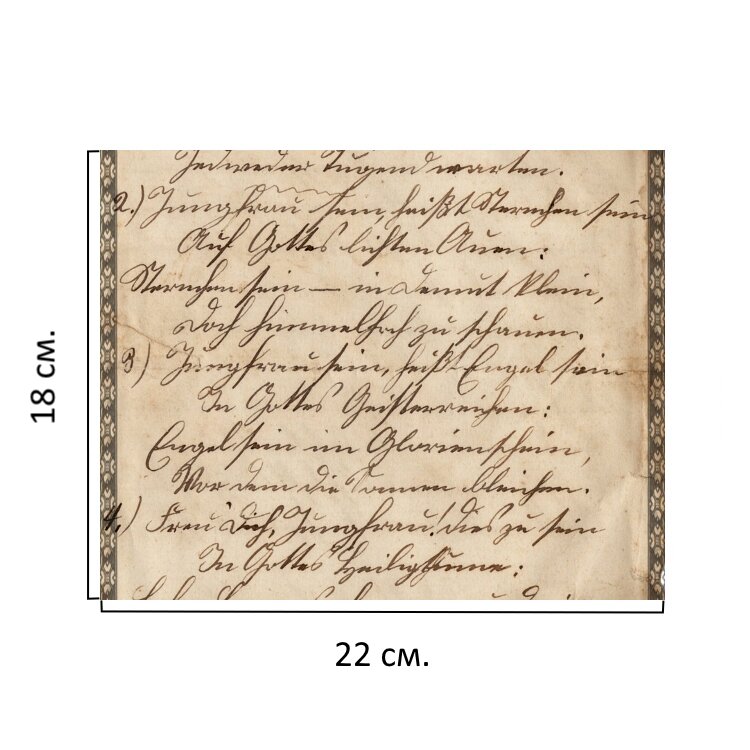 Jedweder Tugend warten.
2.) Jungfrau sein, heißt Sternchen sein
Auf Gottes lichten Auen:
Sternchen sein — in Demut klein,
Doch himmelhoch zu schauen.
3) Jungfrau sein, heißt Engel sein
In Gottes Geisterreichen:
Engel sein im Glorienschein,
Vor dem die Sonnen bleichen.
4.) Freu Dich, Jungfrau! dies zu sein
In Gottes
18 см.
22 см.